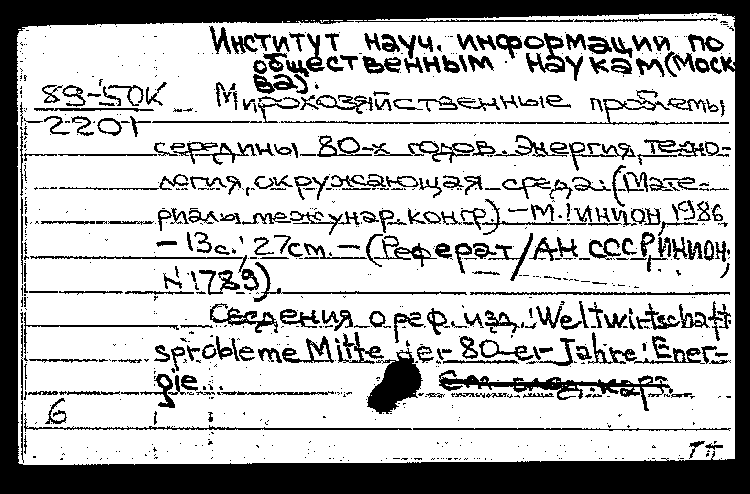 Институт науч. информации по
общественным наукам (Моск-
ва).
89-50К Мирохозяйственные проблемы
2201
середины 80-х годов. Энергия, техно-
логия, окружающая среда: (Мате-
риалы междунар. конгр.) — М.: ИНИОН, 1986
— 13с.; 27см. — (Реферат / АН СССР, ИНИОН;
N 1789).
Сведения о реф. изд.: Weltwirtschaft
sprobleme Mitte der 80-er Jahre: Ener-
gie...
6